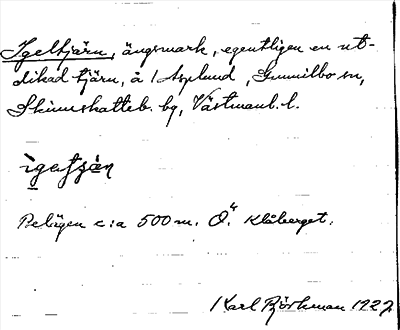 Igeltjärn, ängsmark, egentligen en ut-
dikad tjärn, å 1 Asplund, Gunnilbo sn,
Skinnskatteb. bg, Västmanl. l.
ìgəlʃæ̀n
Belägen c:a 500 m. Ö. Klåberget.
Karl Björkman 1927